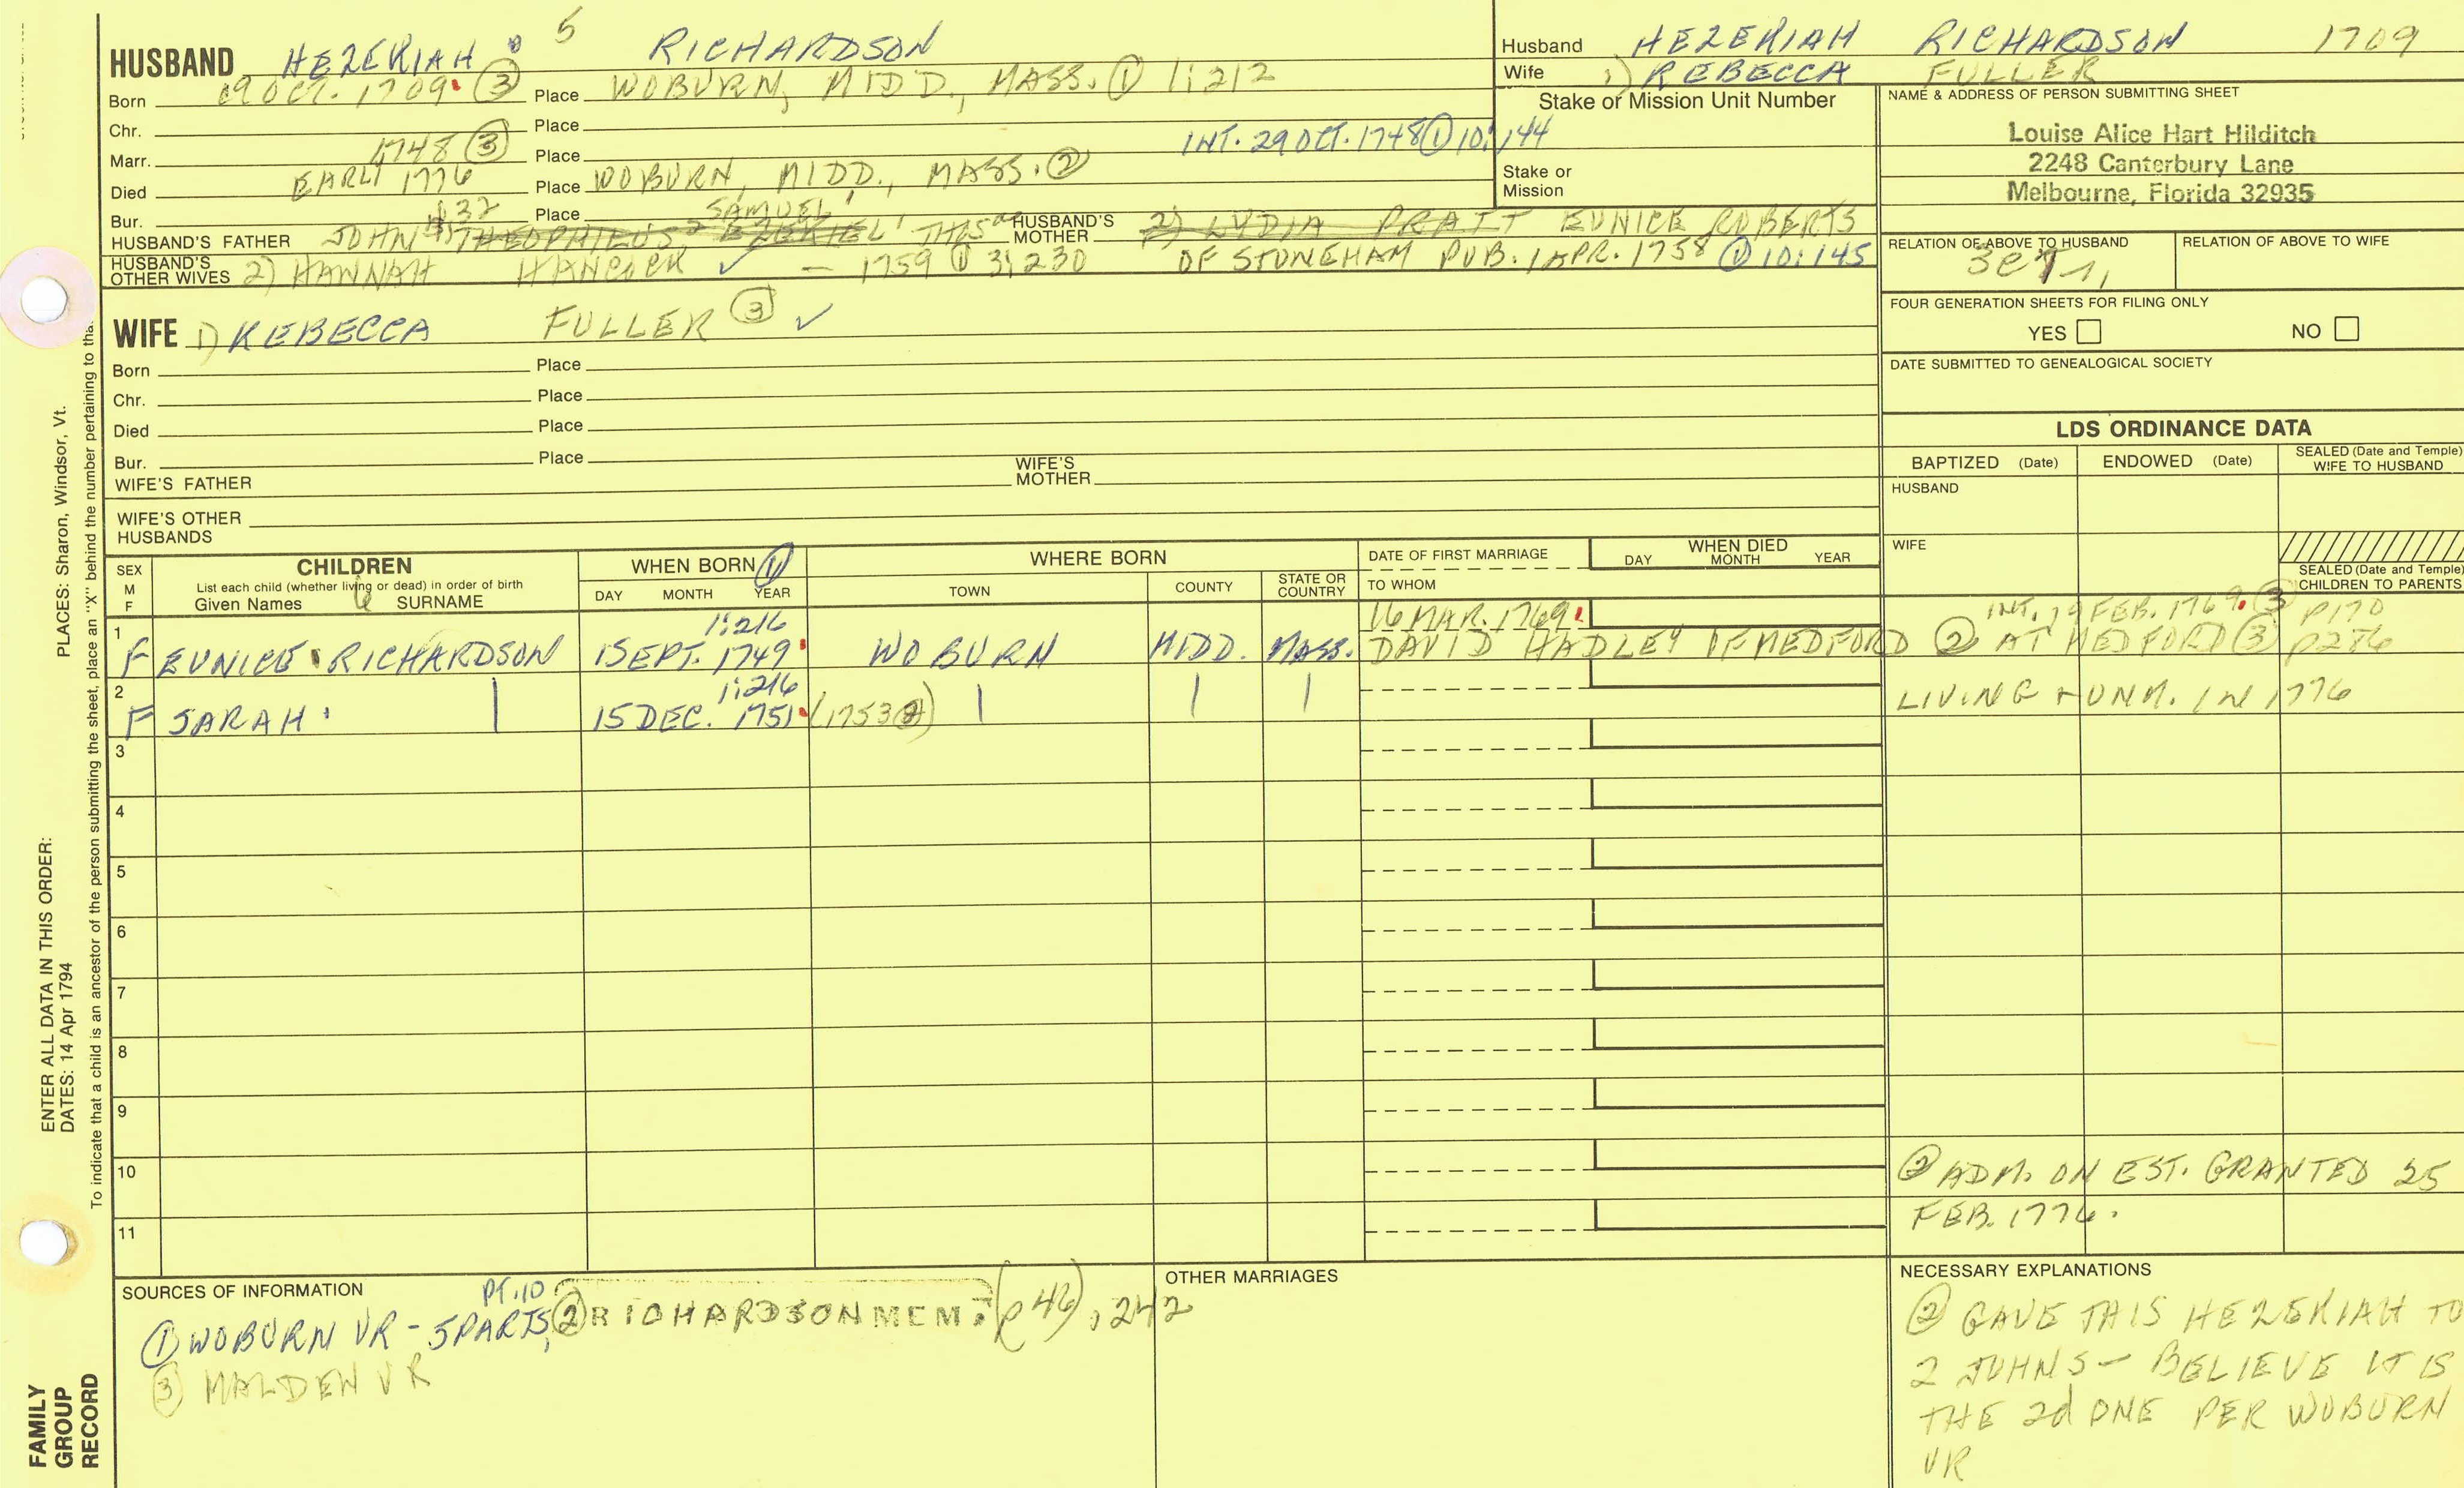 5
HUSBAND HEZEKIAH RICHARDSON
Born 09 OCT. 1709 ③ Place WOBURN, MIDD., MASS. ① 1:212
Chr. Place
Marr. 1748 ③ Place INT. 29 OCT. 1748 ① 10:144
Died EARLY 1776 Place WOBURN, MIDD., MASS. ②
Bur. Place
HUSBAND'S FATHER JOHN THEOPHILUS² EZEKIEL¹ SAMUEL¹ HUSBAND'S MOTHER 2) LYDIA PRATT EUNICE ROBERTS
HUSBAND'S OTHER WIVES 2) HANNAH HANCOCK ✓ — 1759 ① 3:230 OF STONEHAM PUB. 1 APR. 1758 ① 10:145
WIFE 1) REBECCA FULLER ③ ✓
Born Place
Chr. Place
Died Place
Bur. Place
WIFE'S FATHER WIFE'S MOTHER
WIFE'S OTHER HUSBANDS
Husband HEZEKIAH RICHARDSON 1709
Wife 1) REBECCA FULLER
Stake or Mission Unit Number
Stake or
Mission
NAME & ADDRESS OF PERSON SUBMITTING SHEET
Louise Alice Hart Hilditch
2248 Canterbury Lane
Melbourne, Florida 32935
RELATION OF ABOVE TO HUSBAND RELATION OF ABOVE TO WIFE
FOUR GENERATION SHEETS FOR FILING ONLY
YES NO
DATE SUBMITTED TO GENEALOGICAL SOCIETY
LDS ORDINANCE DATA
BAPTIZED (Date) ENDOWED (Date) SEALED (Date and Temple) WIFE TO HUSBAND
HUSBAND
WIFE
SEALED (Date and Temple) CHILDREN TO PARENTS
SEX M F
CHILDREN
List each child (whether living or dead) in order of birth
Given Names SURNAME
WHEN BORN ①
DAY MONTH YEAR
WHERE BORN
TOWN COUNTY STATE OR COUNTRY
DATE OF FIRST MARRIAGE
TO WHOM
WHEN DIED
DAY MONTH YEAR
1 1:216 16 MAR. 1769 INT. 19 FEB. 1769. ③ P170
F EUNICE RICHARDSON 1 SEPT. 1749 WOBURN MIDD. MASS. DAVID HADLEY OF MEDFORD ② AT MEDFORD ③ P286
2 1:216
F SARAH | 15 DEC. 1751 (1753 ②) | | | LIVING + UNM. IN 1776
3
4
5
6
7
8
9
10 ② ADM. ON EST. GRANTED 25
FEB. 1776.
11
SOURCES OF INFORMATION
PT. 10
① WOBURN VR - 5 PARTS, ② RICHARDSON MEM. (p 46), 242
③ MALDEN VR
OTHER MARRIAGES
NECESSARY EXPLANATIONS
② GAVE THIS HEZEKIAH TO
2 JOHNS - BELIEVE IT IS
THE 2d ONE PER WOBURN
VR
PLACES: Sharon, Windsor, Vt.
ENTER ALL DATA IN THIS ORDER:
DATES: 14 Apr 1794
To indicate that a child is an ancestor of the person submitting the sheet, place an "X" behind the number pertaining to tha
FAMILY
GROUP
RECORD